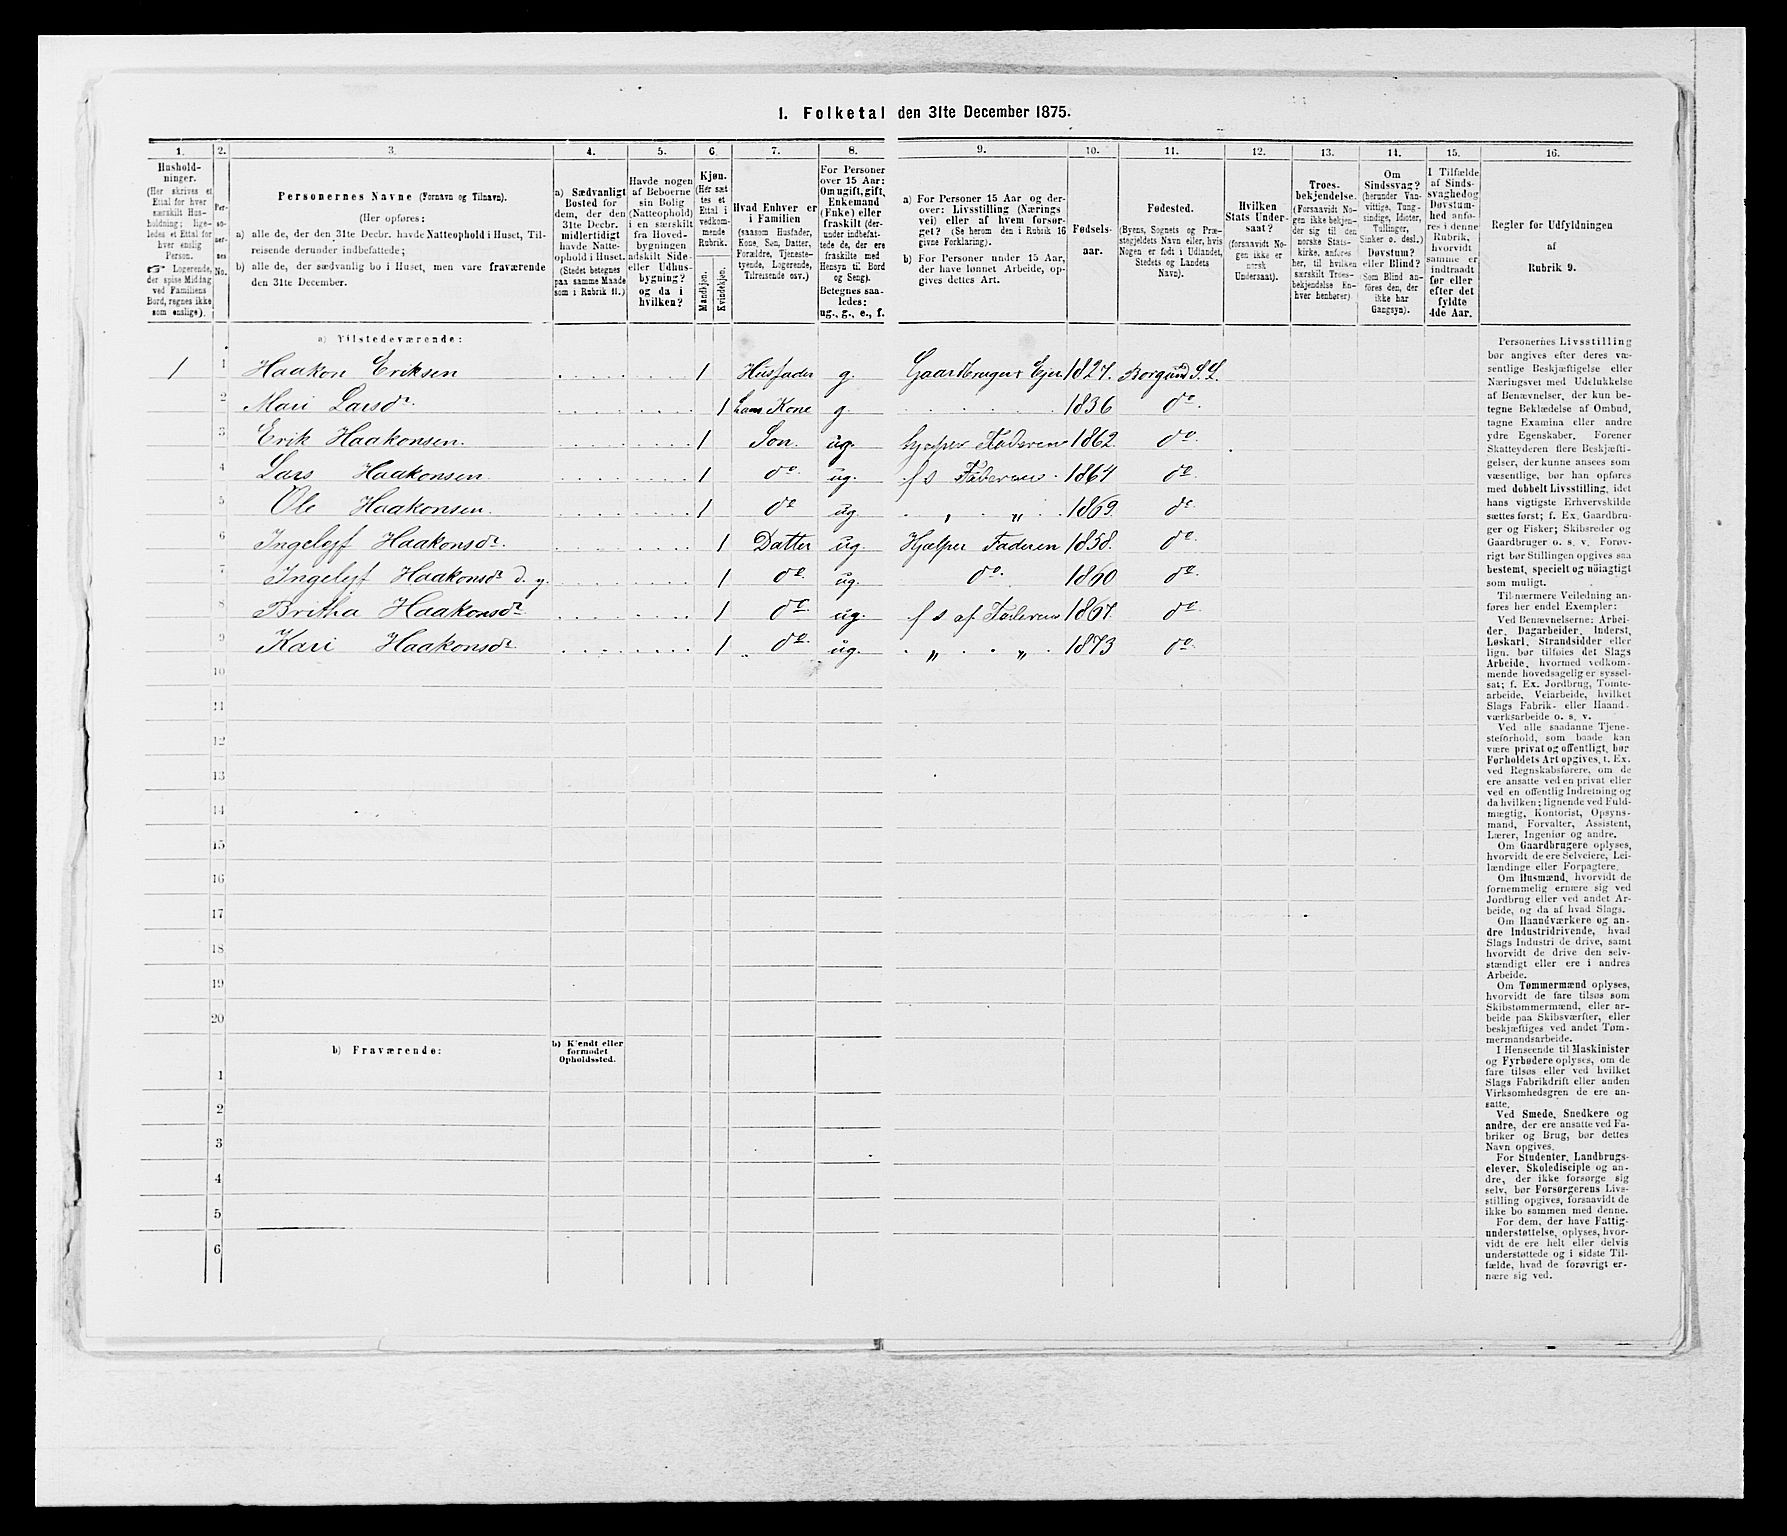 1. Folketal den 31te December 1875.
1. 2. 3. 4. 5. 6. 7. 8. 9. 10. 11. 12. 13. 14. 15. 16.
Hushold-
ninger.
(Her skrives et
Ettal for hver
særskilt Hus-
holdning; lige-
ledes et Ettal for
hver enslig
Person.
☞ Logerende,
der spise Middag
ved Familiens
Bord, regnes ikke
som enslige).
Per-
so-
ner-
nes
No.
Personernes Navne (Fornavn og Tilnavn).
(Her opføres:
a) alle de, der den 31te Decbr. havde Natteophold i Huset, Til-
reisende derunder indbefattede;
b) alle de, der sædvanlig bo i Huset, men vare fraværende
den 31te December.
a) Sædvanligt
Bosted for
dem, der den
31te Decbr.
midlertidigt
havde Natte-
ophold i Huset.
(Stedet betegnes
paa samme Maade
som i Rubrik 11.)
Havde nogen
af Beboerne
sin Bolig
(Natteophold)
i en særskilt
fra Hoved-
bygningen
adskilt Side-
eller Udhus-
bygning?
og da i
hvilken?
Kjøn.
(Her sæt-
tes et
Ettal i
vedkom-
mende
Rubrik.
Mandkjøn.
Kvindekjøn.
Hvad Enhver er
i Familien
(saasom Husfader,
Kone, Søn, Datter,
Forældre, Tjeneste-
tyende, Logerende,
Tilreisende osv.)
For Personer
over 15 Aar:
Om ugift, gift,
Enkemand
(Enke) eller
fraskilt (der-
under indbefat-
tede de, der ere
fraskilte med
Hensyn til Bord
og Seng).
Betegnes saa-
ledes:
ug., g., e., f.
a) For Personer 15 Aar og der-
over: Livsstilling (Nærings
vei) eller af hvem forsør-
get? (Se herom den i Rubrik 16
givne Forklaring).
b) For Personer under 15 Aar,
der have lønnet Arbeide, op-
gives dettes Art.
Fødsels-
aar.
Fødested.
(Byens, Sognets og Præ-
stegjeldets Navn eller, hvis
Nogen er født i Udlandet,
Stedets og Landets
Navn).
Hvilken
Stats Under-
saat?
(forsaavidt No-
gen ikke er
norsk
Undersaat).
Troes-
bekjendelse.
(Forsaavidt No-
gen ikke bekjen-
der sig til den
norske Stats-
kirke, anføres
her, til hvilken
særskilt Troes-
bekjendelse En-
hver henhører)
Om
Sindssvag?
(herunder Van-
vittige, Tung-
sindige, Idioter,
Tullinger,
Sinker o. desl.)
Døvstum?
eller Blind?
(Som Blind an-
føres den, der
ikke har
Gangsyn).
I Tilfælde
af Sinds-
svaghed og
Døvstum-
hed anfø-
res i denne
Rubrik,
hvorvidt
samme er
indtraadt
før eller
efter det
fyldte
4de Aar.
Regler for Udfyldningen
af
Rubrik 9.
a) Tilstedeværende:
1 1 Haakon Eriksen 1 Husfader g. Gaardbruger Ejer 1827. Borgund S.L.
2 Mari Larsdr. 1 hans Kone g. 1836 do.
3 Erik Haakonsen. 1 Søn. ug. hjælper Faderen 1862 do.
4 Lars Haakonsen 1 do ug. f s Faderen 1864 do
5 Ole Haakonsen. 1 do ug „ „ 1869. do
6 Ingelejf Haakonsdr. 1 Datter ug. Hjælper Faderen 1858. do.
7 Ingelejf Haakonsdr d. y. 1 do. ug. do. 1860 do
8 Britha Haakonsdr 1 do ug. f s af Faderen 1867. do
9 Kari Haakonsdr. 1 do. ug. „ „ 1873 do
10
11
12
13
14
15
16
17
18
19
20
b) Fraværende:
b) Kjendt eller
formodet
Opholdssted.
1
2
3
4
5
6
Personernes Livsstilling
bør angives efter deres væ-
sentlige Beskjæftigelse eller
Næringsvei med Udelukkelse
af Benævnelser, der kun be-
tegne Beklædelse af Ombud,
tagne Examina eller andre
ydre Egenskaber. Forener
Skatteyderen flere Beskjæfti-
gelser, der kunne ansees som
væsentlige, bør han opføres
med dobbelt Livsstilling, idet
hans vigtigste Erhvervskilde
sættes først; f. Ex. Gaardbru-
ger og Fisker; Skibsreder og
Gaardbruger o. s. v. Forøv-
rigt bør Stillingen opgives saa
bestemt, specielt og nöiagtigt
som muligt.
Til nærmere Veiledning an-
føres her endel Exempler:
Ved Benævnelserne: Arbei-
der, Dagarbeider, Inderst,
Løskarl, Strandsidder eller
lign. bør tilføies det Slags
Arbeide, hvormed vedkom-
mende hovedsagelig er syssel-
sat; f. Ex. Jordbrug, Tømte-
arbeide, Veiarbeide, hvilket
Slags Fabrik- eller Haand-
værksarbeide o. s. v.
Ved alle saadanne Tjene-
steforhold, som baade kan
være privat og offentligt, bør
Forholdets Art opgives, f. Ex.
ved Regnskabsførere, om de
ere ansatte ved en privat eller
ved en offentlig Indretning og
da hvilken; lignende ved Fuld-
mægtig, Kontorist, Opsyns-
mand, Forvalter, Assistent,
Lærer, Ingeniør og andre.
Om Gaardbrugere oplyses,
hvorvidt de ere Selveiere, Lei-
lændinge eller Forpagtere.
Om Husmænd, hvorvidt de
fornemmelig ernære sig ved
Jordbrug eller ved andet Ar-
beide, og da af hvad Slags.
Om Haandværkere og an-
dre Industridrivende, hvad
Slags Industri de drive, samt
hvorvidt de drive den selv-
stændigt eller ere i andres
Arbeide.
Om Tømmermænd oplyses,
hvorvidt de fare tilsøs som
Skibstømmermænd, eller ar-
beide paa Skibsværfter, eller
beskjæftiges ved andet Tøm-
mermandsarbeide.
I Henseende til Maskinister
og Fyrbødere oplyses, om de
fare tilsøs eller ved hvilket
Slags Fabrikdrift eller anden
Virksomhedsgren de ere an-
satte.
Ved Smede, Snedkere og
andre, der ere ansatte ved Fa-
briker og Brug, bør dettes
Navn opgives.
For Studenter, Landbrugs-
elever, Skoledisciple og an-
dre, der ikke forsørge sig
selv, bør Forsørgerens Livs-
stilling opgives, forsaavidt de
ikke bo sammen med denne.
For dem, der have Fattig-
understøttelse, oplyses, hvor-
vidt de ere helt eller delvis
understøttede og i sidste Til-
fælde, hvad de forøvrigt er-
nære sig ved.